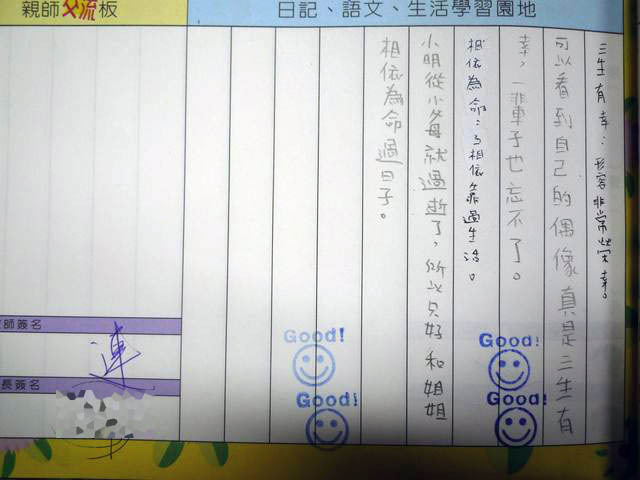 親師交流板
日記、語文、生活學習園地
三生有幸：形容非常榮幸。
可以看到自己的偶像真是三生有
幸，一輩子也忘不了。
相依為命：互相依靠過生活。
小明從小父母就過逝了，所以只好和姐姐
相依為命過日子。
師簽名
連
長簽名
Good!
Good!
Good!
Good!